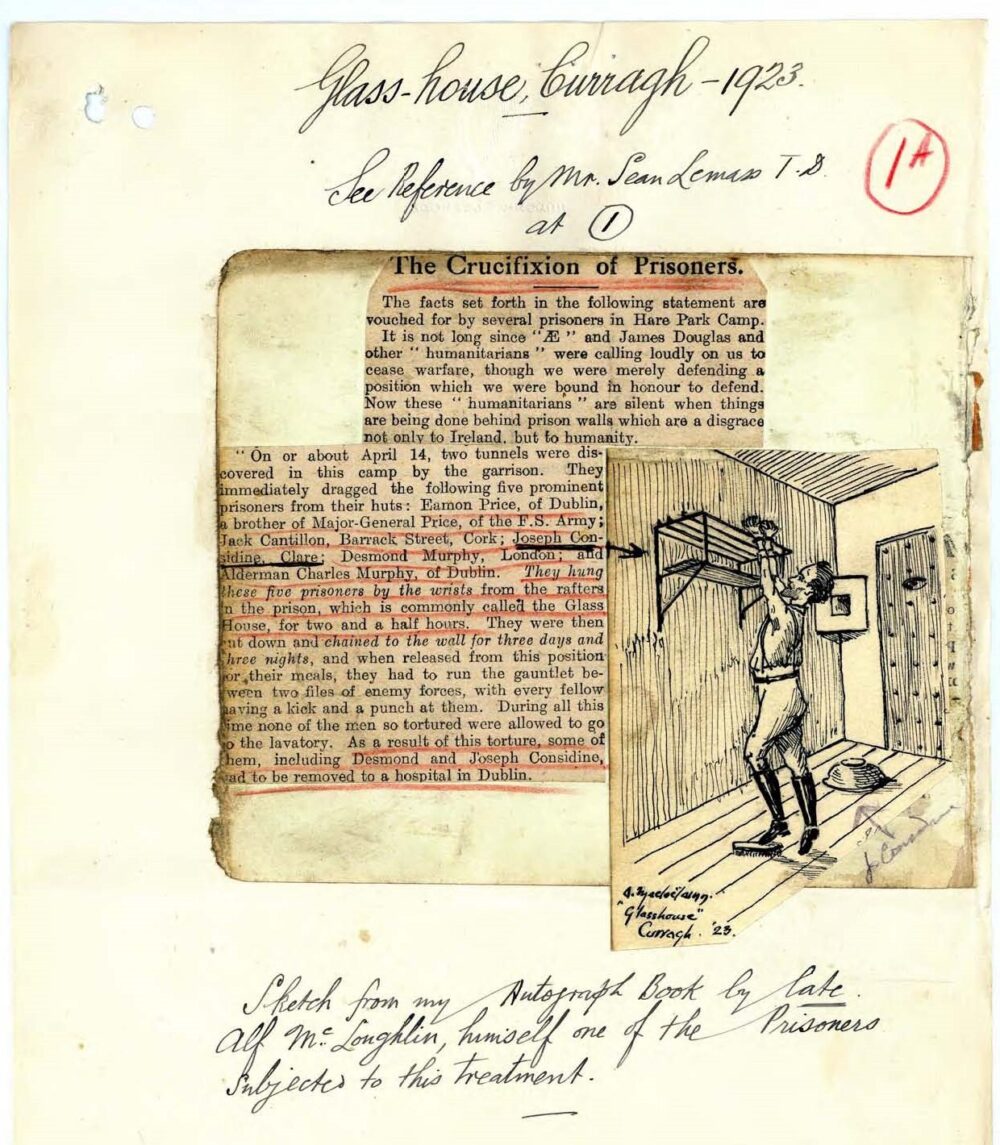 Glass-house, Curragh – 1923.
1A
See Reference by Mr. Sean Lemass T.D.
at 1
The Crucifixion of Prisoners.
The facts set forth in the following statement are
vouched for by several prisoners in Hare Park Camp.
It is not long since "Æ" and James Douglas and
other "humanitarians" were calling loudly on us to
cease warfare, though we were merely defending a
position which we were bound in honour to defend.
Now these "humanitarians" are silent when things
are being done behind prison walls which are a disgrace
not only to Ireland, but to humanity.
"On or about April 14, two tunnels were dis-
covered in this camp by the garrison. They
immediately dragged the following five prominent
prisoners from their huts: Eamon Price, of Dublin,
a brother of Major-General Price, of the F.S. Army;
Jack Cantillon, Barrack Street, Cork; Joseph Con-
sidine, Clare; Desmond Murphy, London; and
Alderman Charles Murphy, of Dublin. They hung
these five prisoners by the wrists from the rafters
in the prison, which is commonly called the Glass
House, for two and a half hours. They were then
cut down and chained to the wall for three days and
three nights, and when released from this position
for their meals, they had to run the gauntlet be-
tween two files of enemy forces, with every fellow
having a kick and a punch at them. During all this
time none of the men so tortured were allowed to go
to the lavatory. As a result of this torture, some of
them, including Desmond and Joseph Considine,
had to be removed to a hospital in Dublin.
"Glasshouse"
Curragh. '23.
Sketch from my Autograph Book by late
Alf McLoughlin, himself one of the Prisoners
subjected to this treatment.